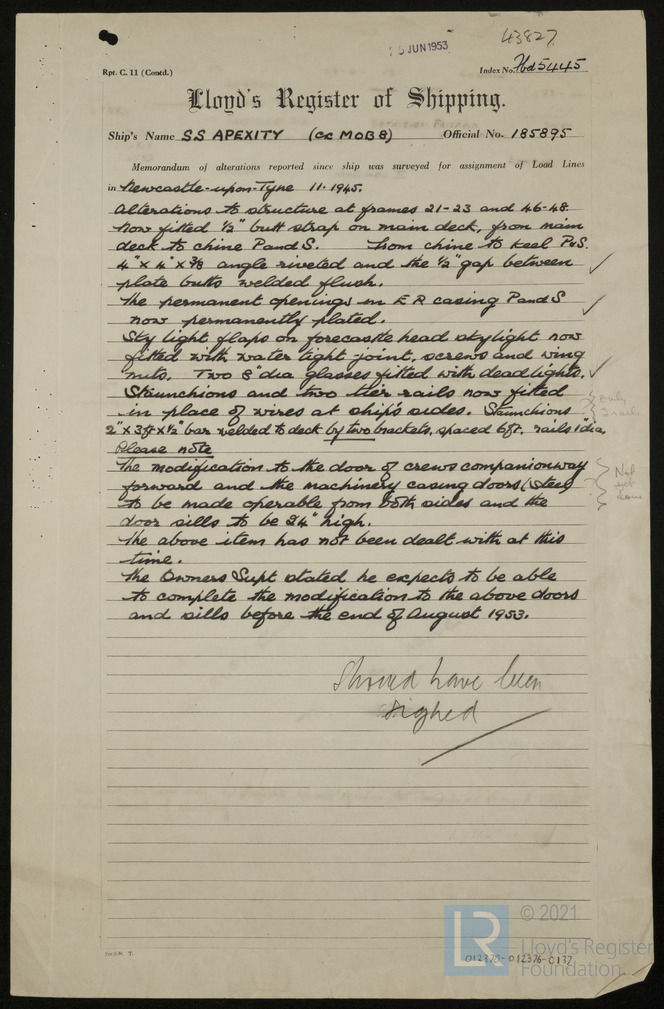 5 JUN 1953
43827
Rpt. C. 11 (Contd.)
Index No. Hbd 5445
Lloyd's Register of Shipping.
Ship's Name SS APEXITY (ex MOB 8) Official No. 185895
Memorandum of alterations reported since ship was surveyed for assignment of Load Lines
in Newcastle-upon-Tyne 11. 1945.
Alterations to structure at frames 21-23 and 46-48.
Now fitted ½" butt strap on main deck, from main
deck to chine P and S. From chine to keel P&S.
4" x 4" x 3/8 angle riveted and the ½" gap between
plate butts welded flush.
The permanent openings in E R casing P and S
now permanently plated.
Sky light flaps on forecastle head skylight now
fitted with water tight joint, screws and wing
nuts. Two 8" dia glasses fitted with deadlights.
Staunchions and two tier rails now fitted
in place of wires at ship's sides. Staunchions
2" x 3ft x ½" bar welded to deck by two brackets, spaced 6ft. rails 1" dia
Please note
The modification to the door of crews companionway
forward and the machinery casing doors (steel)
to be made operable from both sides and the
door sills to be 24" high.
The above item has not been dealt with at this
time.
The Owners Supt stated he expects to be able
to complete the modification to the above doors
and sills before the end of August 1953.
Not
yet
done
Should have been
signed
© 2021
LR
Lloyd's Register
Foundation
012370-012376-0137